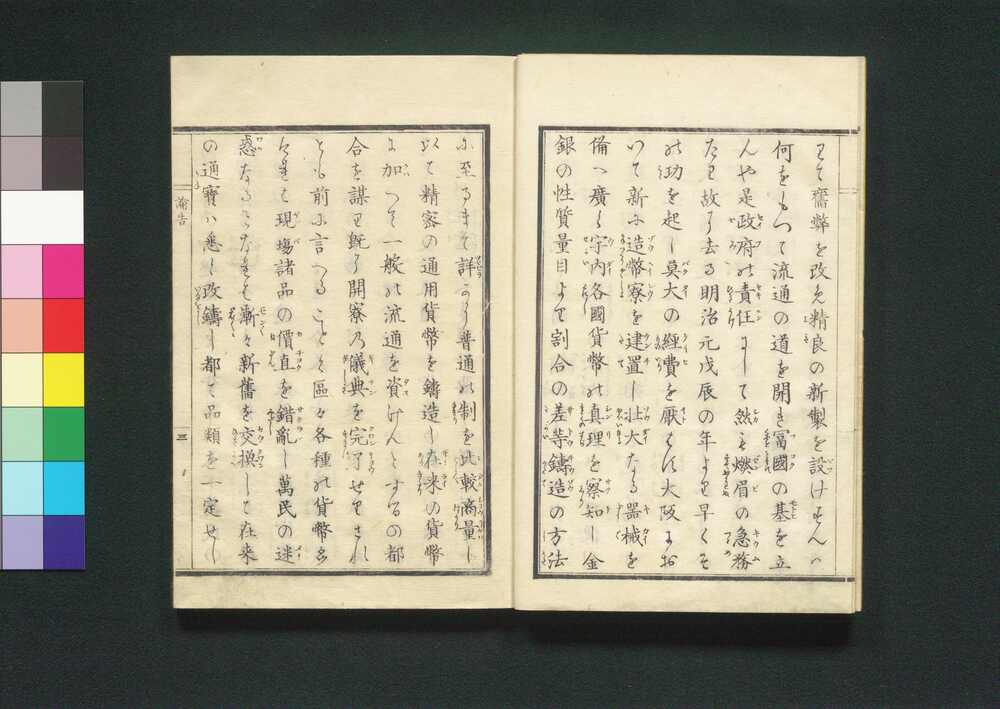 して舊弊を改め精良の新製を設けすんハ
何をもつて流通の道を開き冨國の基を立
んや是政府の責任にして然も燃眉の急務
たり故に去る明治元戊辰の年より早くそ
の功を起し莫大の經費を厭はす大阪にお
いて新に造幣寮を建置し壮大なる器械を
備へ廣く宇内各國貨幣の真理を察知し金
銀の性質量目より割合の差等鑄造の方法
に至るまて詳かに普通の制を比較商量し
以て精密の通用貨幣を鑄造し在来の貨幣
に加へて一般の流通を資けんとするの都
合を謀り既に開寮の儀典を完了せりされ
とも前に言へることく區々各種の貨幣
現塲諸品の價直を錯亂し萬民の迷
惑なる漸々新舊を交換して在来
の通寶ハ悉く改鑄し都て品類を一定せし
諭告
三